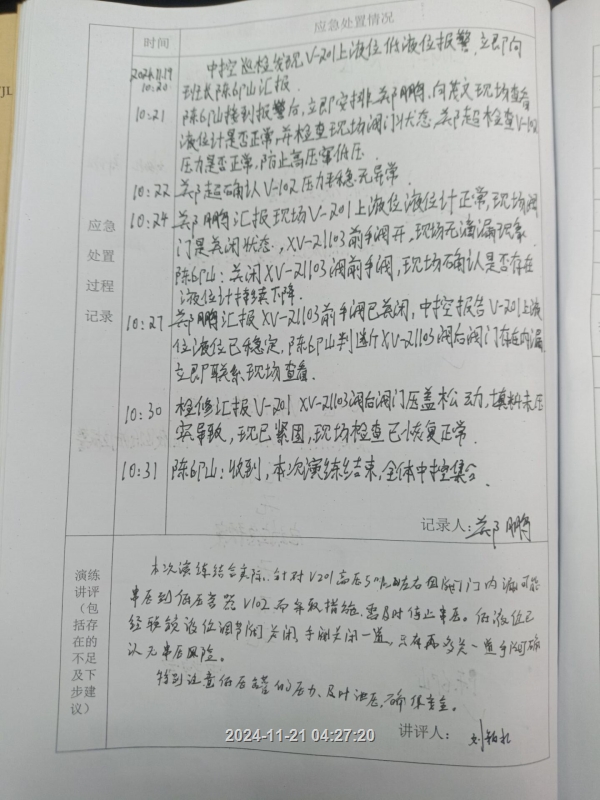 应急处置情况
时间
2024.11.19
10:20
中控巡检发现V-201上液位低液位报警,立即向
班长陈6户山汇报
10:21
陈6户山接到报警后,立即安排郑鹏、向茂文现场查看
液位计是否正常,并检查现场阀门状态,郑超检查V-102
压力是否正常,防止高压窜低压.
10:22
郑超确认V-102压力平稳无异常
10:24
郑鹏汇报现场V-201上液位液位计正常,现场阀
门是关闭状态,XV-21103前手阀开,现场无滴漏现象
陈6户山:关闭XV-21103阀前手阀,现场确认是否存在
液位计持续下降.
10:27
郑鹏汇报XV-21103前手阀已关闭,中控报告V-201上液
位液位已稳定,陈6户山判断XV-21103阀后阀门存在内漏
立即联系现场查看.
10:30
检修汇报V-201 XV-21103阀后阀门压盖松动,填料未压
实导致,现已紧固,现场检查已恢复正常.
10:31
陈6户山:收到,本次演练结束,全体中控集合.
应急
处置
过程
记录
记录人:郑鹏
演练
讲评
(包
括存
在的
不足
及下
步建
议)
本次演练结合实际,针对V201高压 左右 阀门内漏可能
串压到低压容器V102而采取措施,需及时停止串压。低液位已
经联锁液位调节阀关闭,手阀关闭一道,只有再关一道手阀确
认无串压风险。
特别注意低压罐的压力、及时泄压,确保安全。
讲评人:
2024-11-21 04:27:20